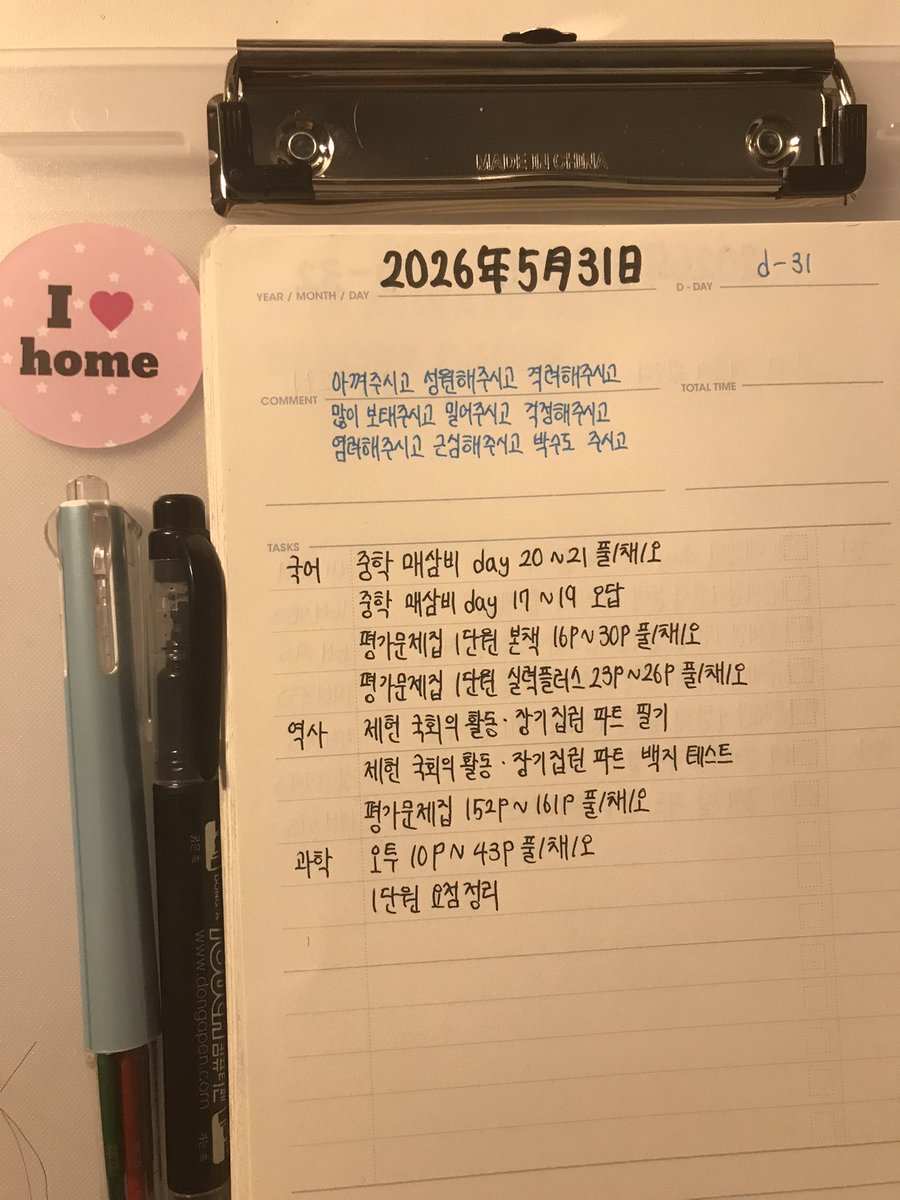 MADE IN CHINA
I ♥ home
YEAR / MONTH / DAY 2026年5月31日
D - DAY d-31
COMMENT
아껴주시고 성원해주시고 격려해주시고
많이 보태주시고 밀어주시고 걱정해주시고
염려해주시고 근심해주시고 박수도 주시고
TOTAL TIME
TASKS
국어 중학 매삼비 day 20~21 풀/채/오
중학 매삼비 day 17~19 오답
평가문제집 1단원 본책 16p~30p 풀/채/오
평가문제집 1단원 실력플러스 23p~26p 풀/채/오
역사 제헌 국회의 활동·장기집권 파트 필기
제헌 국회의 활동·장기집권 파트 백지 테스트
평가문제집 152p~161p 풀/채/오
과학 오투 10p~43p 풀/채/오
1단원 요점정리
굵은 촉
DONG-A
컴퓨터펜
www.dongapen.com